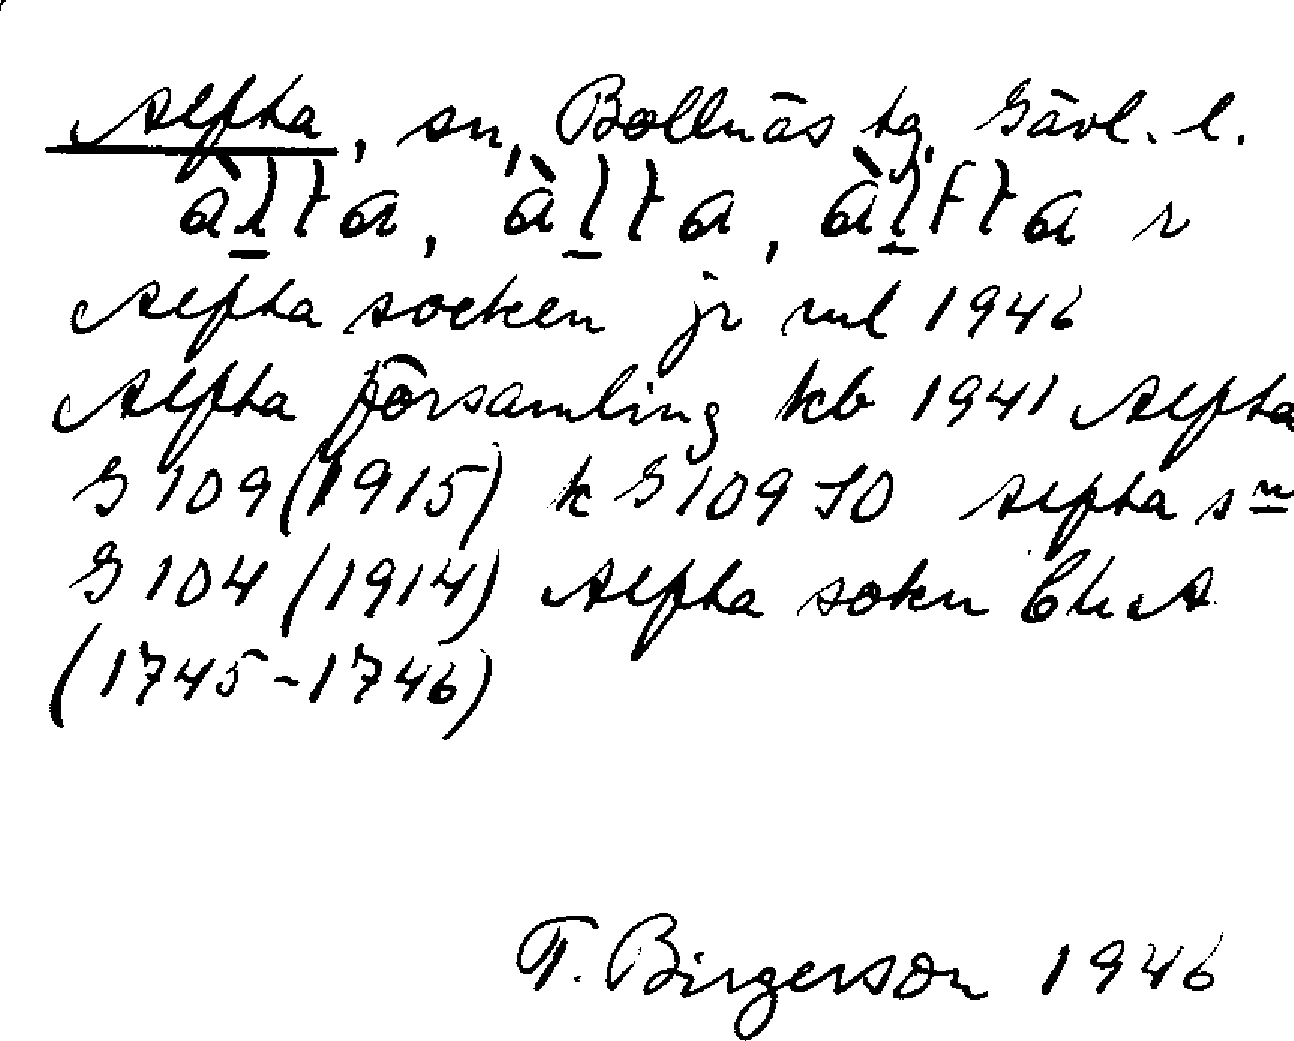 Alfta, sn, Bollnäs tg, Gävl. l.
àl̲ta, àl̲ta, àl̲fta r
Alfta socken jr ml 1946
Alfta församling kb 1941 Alfta
G 109 (1915) k G 109 SO Alfta sn
G 104 (1914) Alfta sokn A
(1745-1746)
T. Birgerson 1946